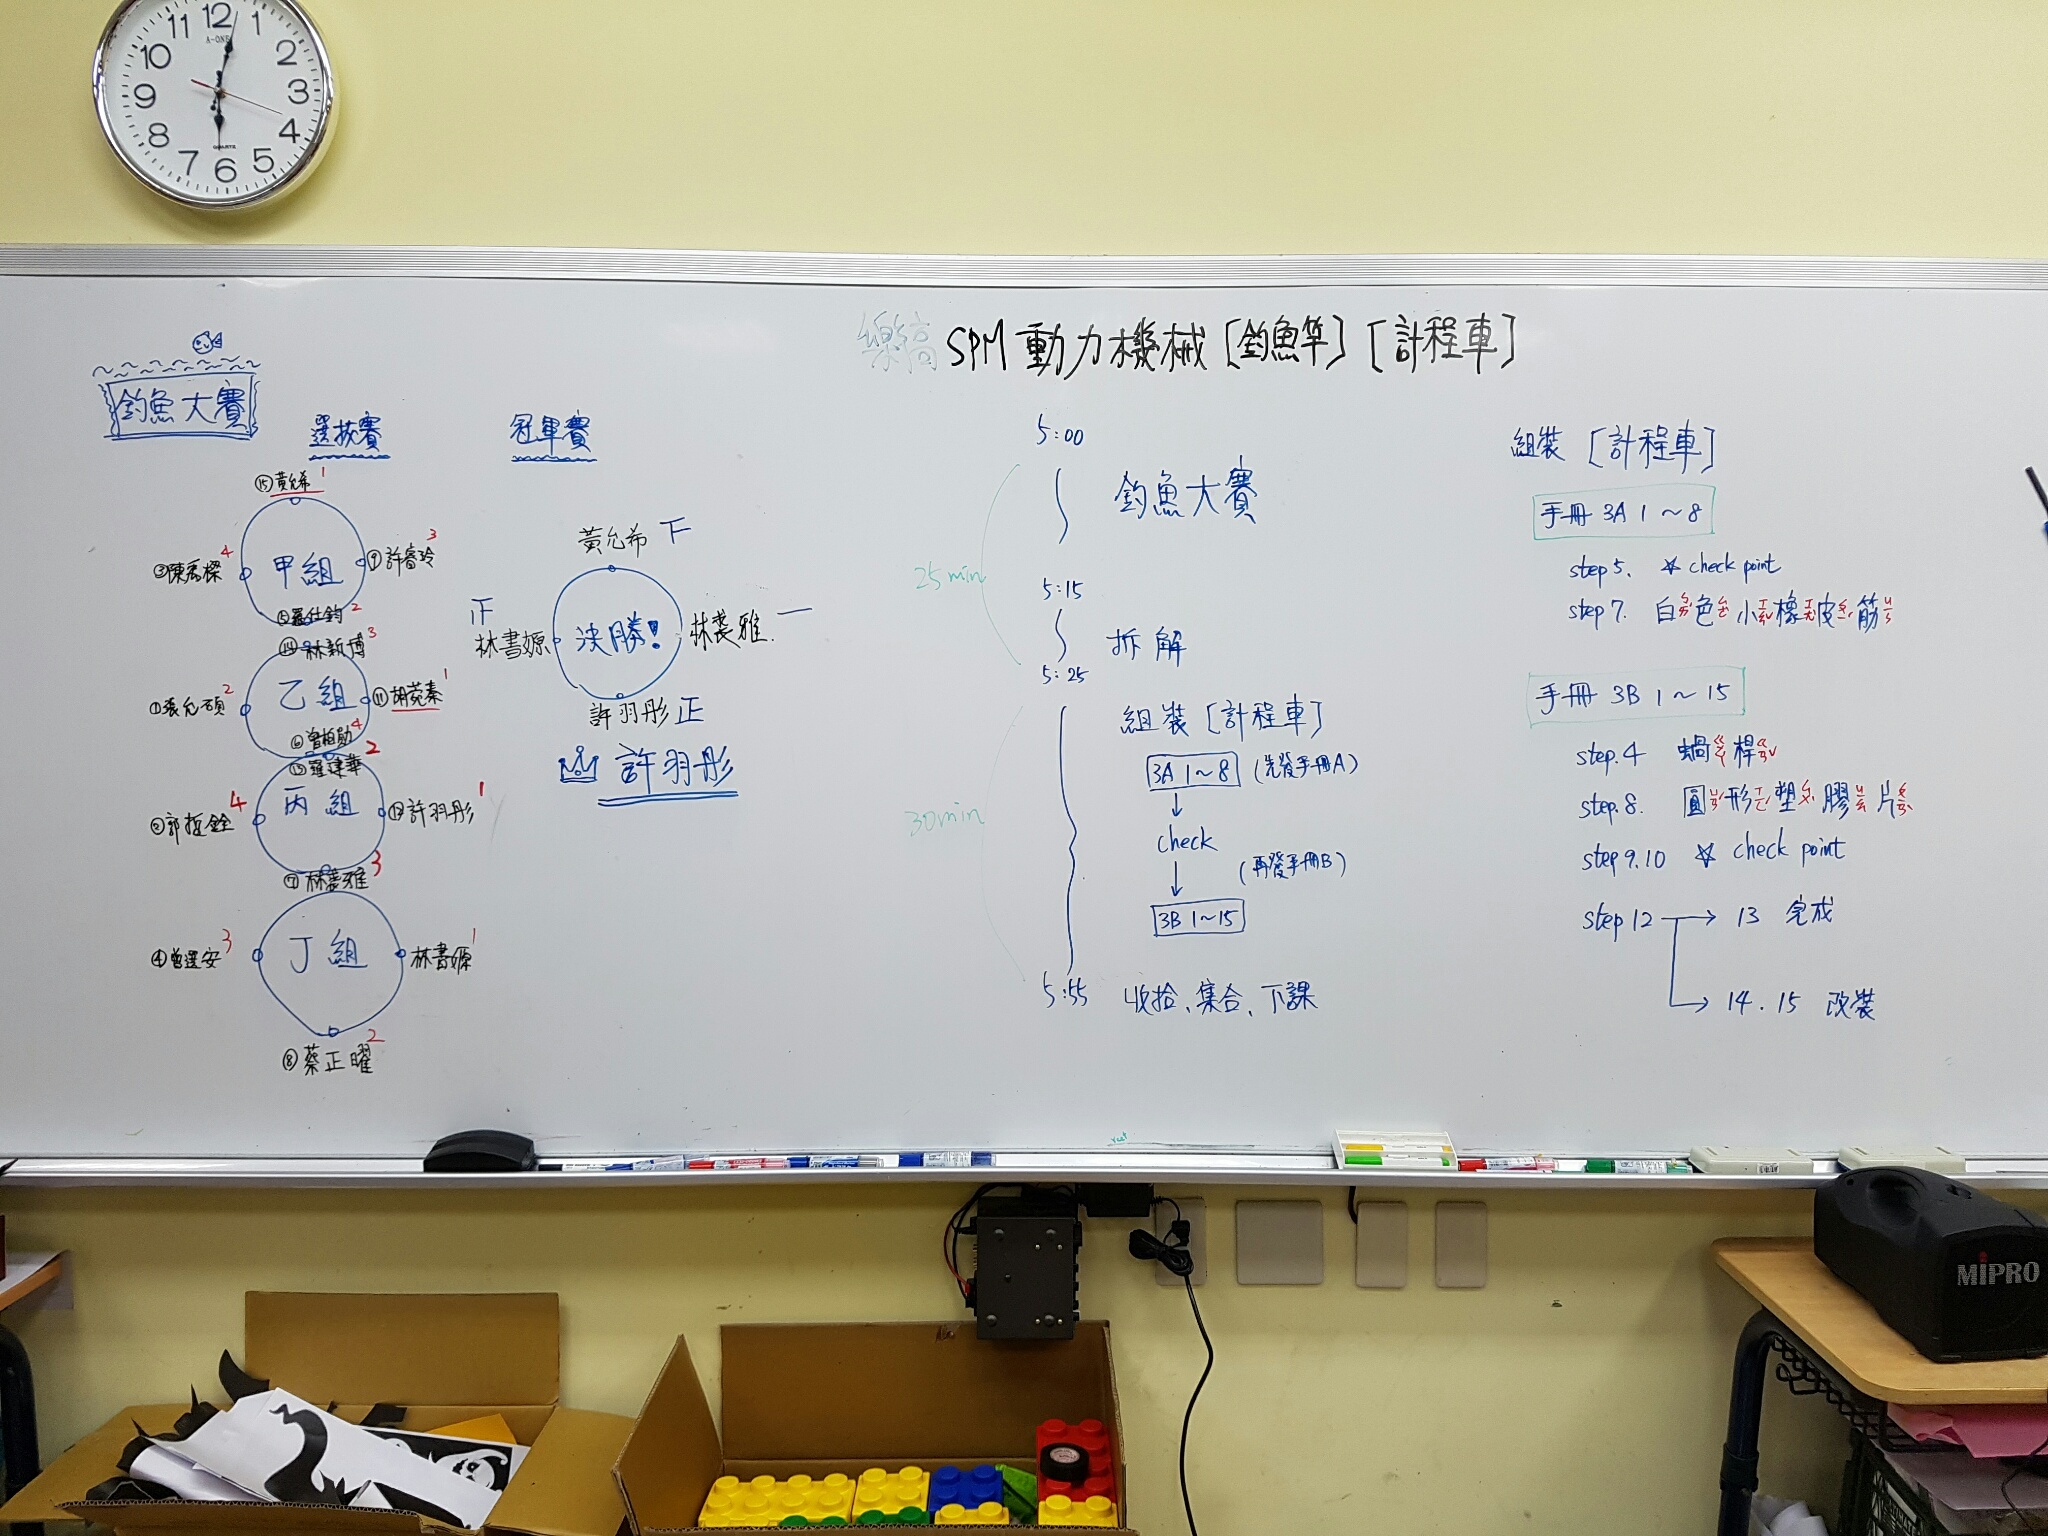 12
11 1
A-ONE
10 2
9 3
8 4
7 5
6
QUARTZ
樂高 SPM 動力機械 [釣魚竿] [計程車]
釣魚大賽
選拔賽
⑮黃允希 1
甲組
③陳禹樑 4
⑨許睿玲 3
⑤羅仕鈞 2
⑭林新博 3
乙組
①張允碩 2
⑪胡菀蓁 1
⑥曾柏勛 4
⑬羅建華 2
丙組
②郭挺銓 4
⑫許羽彤 1
⑦林裘雅 3
丁組
④曾選安 3
林書嫄 1
⑧蔡正曜 2
冠軍賽
黃允希 下
正
林書嫄
決勝!
林裘雅. 一
許羽彤 正
許羽彤
5:00
釣魚大賽
25min
5:15
拆解
5:25
組裝 [計程車]
3A 1~8 (先發手冊A)
30min
check
(再發手冊B)
3B 1~15
5:55 收拾、集合、下課
組裝 [計程車]
手冊 3A 1~8
step 5. ☆ check point
step 7. 白ㄅㄞˊ色ㄙㄜˋ小ㄒㄧㄠˇ橡ㄒㄧㄤˋ皮ㄆㄧˊ筋ㄐㄧㄣ
手冊 3B 1~15
step.4 蝸ㄍㄨㄚ桿ㄍㄢˇ
step.8. 圓ㄩㄢˊ形ㄒㄧㄥˊ塑ㄙㄨˋ膠ㄐㄧㄠ片ㄆㄧㄢˋ
step 9.10 ☆ check point
step 12 → 13 完成
→ 14.15 改裝
MIPRO